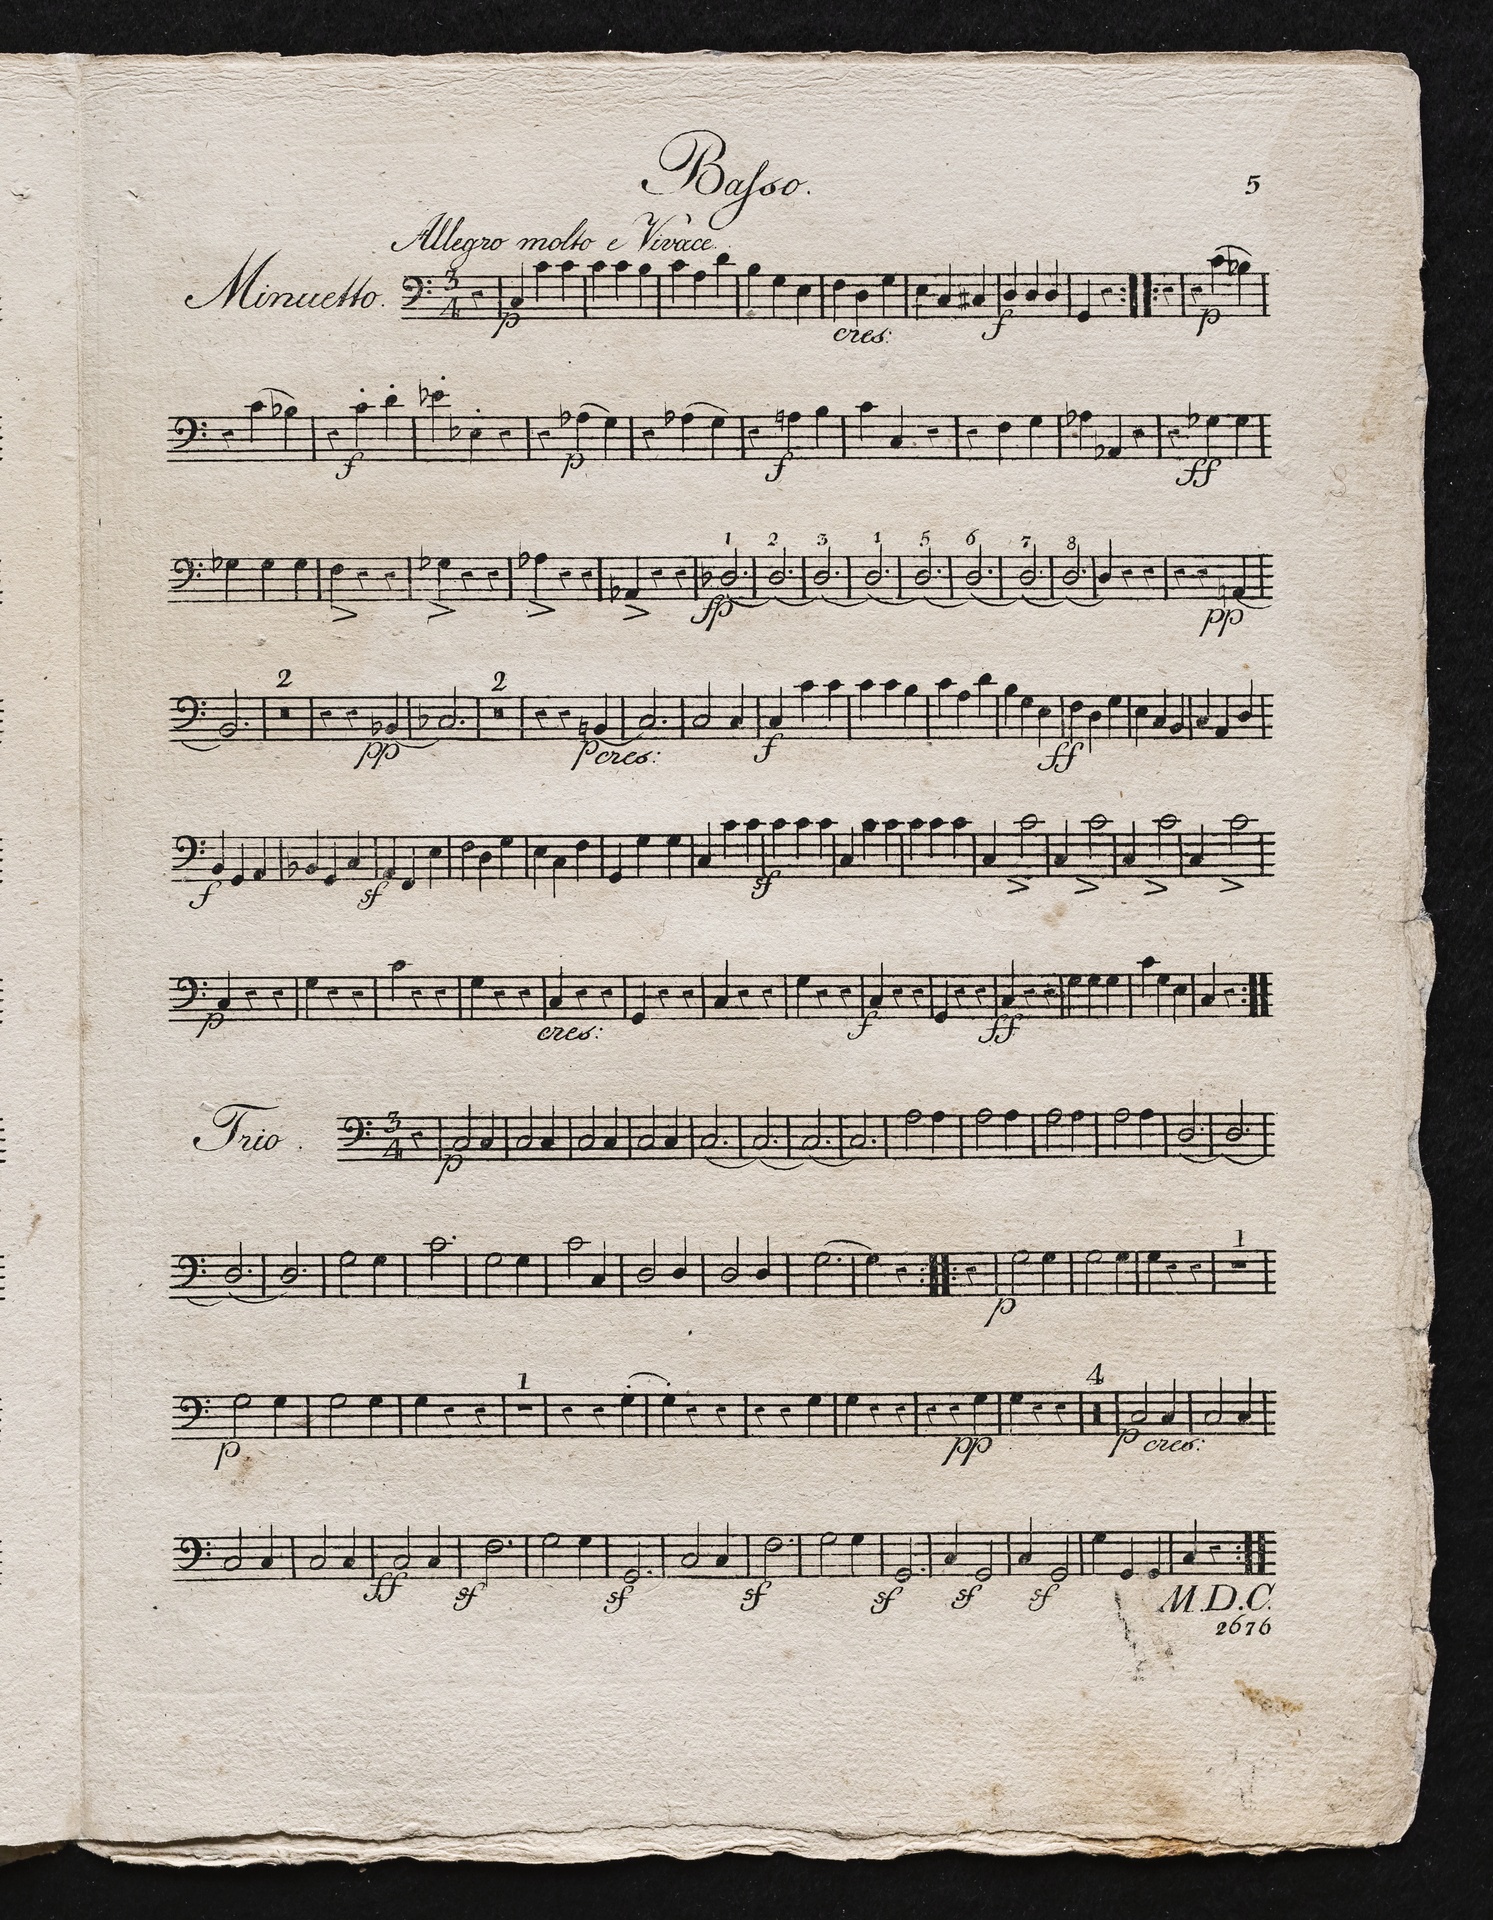 Basso.
5
Allegro molto e Vivace.
Minuetto.
3
4
p cres: f p
f p f ff
1 2 3 1 5 6 7 8
fp pp
2 2
pp p cres: f ff
f sf sf
p cres: f ff
Trio.
3
4
p
1
p
1 4
p pp p cres:
ff sf sf sf sf sf sf
M.D.C.
2676